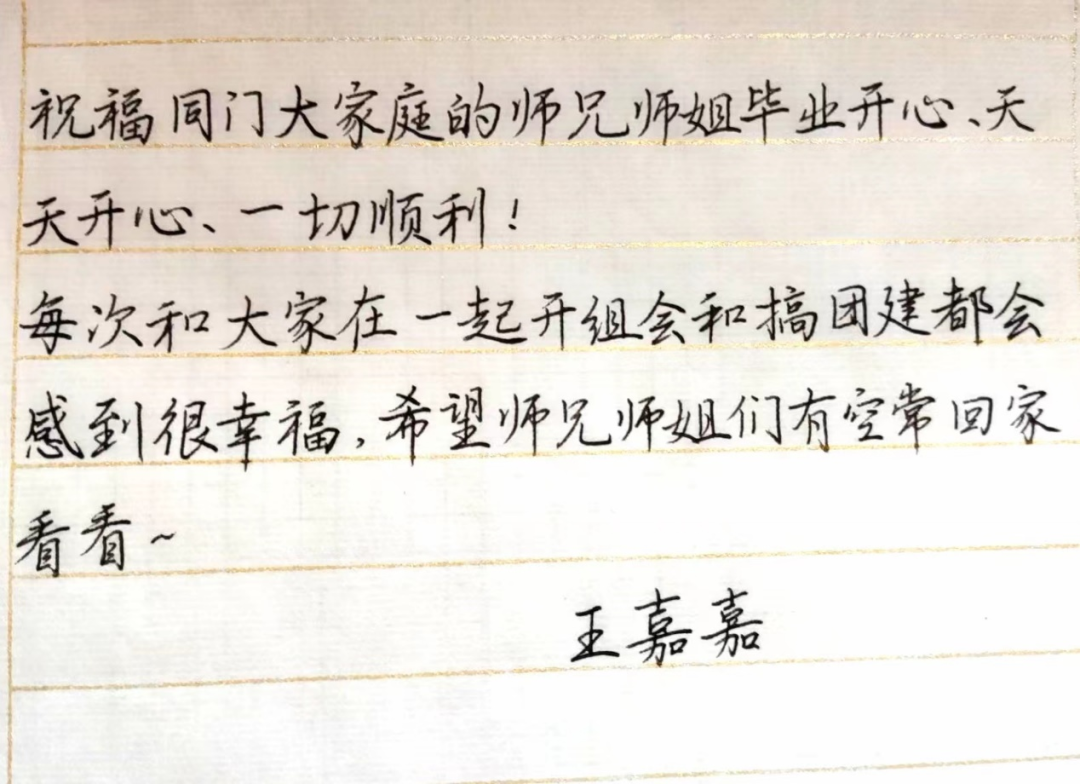 祝福同门大家庭的师兄师姐毕业开心、天
天开心、一切顺利！
每次和大家在一起开组会和搞团建都会
感到很幸福，希望师兄师姐们有空常回家
看看~
王嘉嘉